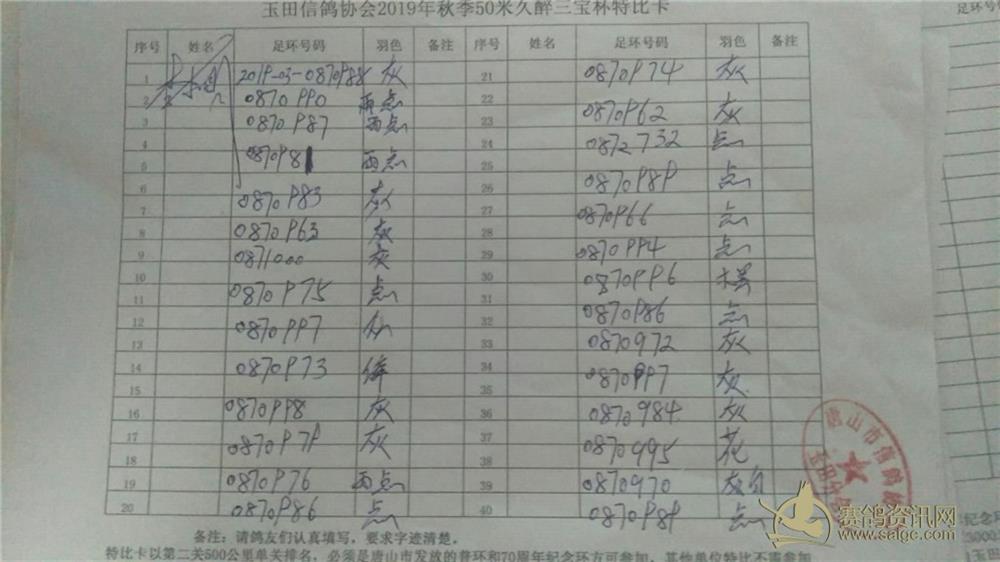 玉田信鸽协会2019年秋季50米久醉三宝杯特比卡
足环号码
序号 姓名 足环号码 羽色 备注 序号 姓名 足环号码 羽色 备注
1 2019-03-0870988 灰 21 0870974 灰
2 0870990 雨点 22 0870962 灰
3 0870987 雨点 23
4 24 0872732 点
5 087098 雨点 25
6 26 0870989 点
7 0870983 灰 27 0870966 点
8 0870963 灰 28
9 0871000 灰 29 0870994 点
10 30 0870996
11 0870975 点 31 0870986 点
12 0870997 32
13 33 0870972 灰
14 0870973 绛 34
15 35 0870997 灰
16 0870998 灰 36 0870984 灰
17 087097 灰 37 0870995 花
18 38
19 0870976 雨点 39 0870970 灰白
20 0870986 点 40 0870989 点
备注：请鸽友们认真填写，要求字迹清楚。
特比卡以第二关500公里单关排名，必须是唐山市发放的普环和70周年纪念环方可参加，其他单位特比不需参加
唐山市信鸽协会
玉田
赛鸽资讯网
www.saigc.com